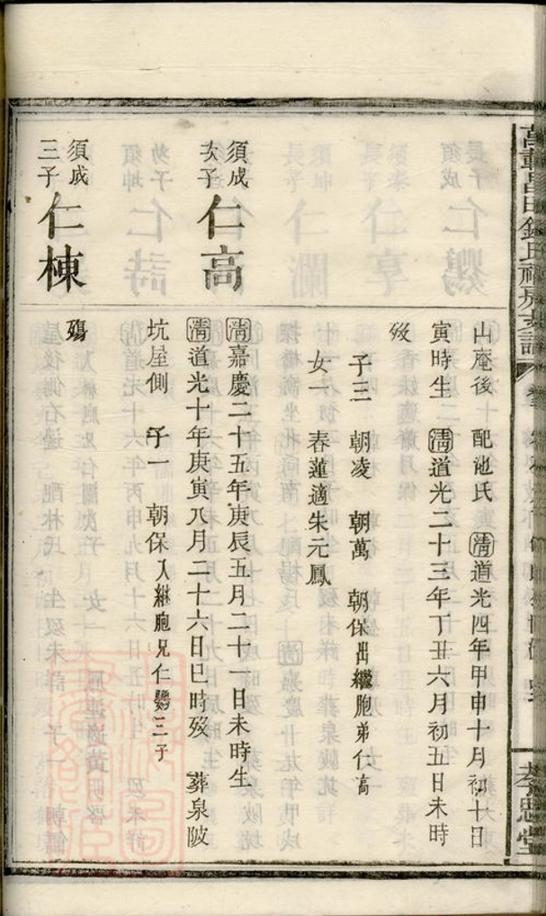 山庵後　配池氏　清道光四年甲申十月初十日
寅時生　清道光二十三年丁丑六月初五日未時
歿
子三　朝凌　朝萬　朝保出繼胞弟仁高
女一　春蓮適朱元鳳
須成
次子
仁高
清嘉慶二十五年庚辰五月二十一日未時生
清道光十年庚寅八月二十六日巳時歿　葬泉陂
坑屋側　子一　朝保入繼胞兄仁鸚三子
須成
三子
仁棟
殤
孝思堂